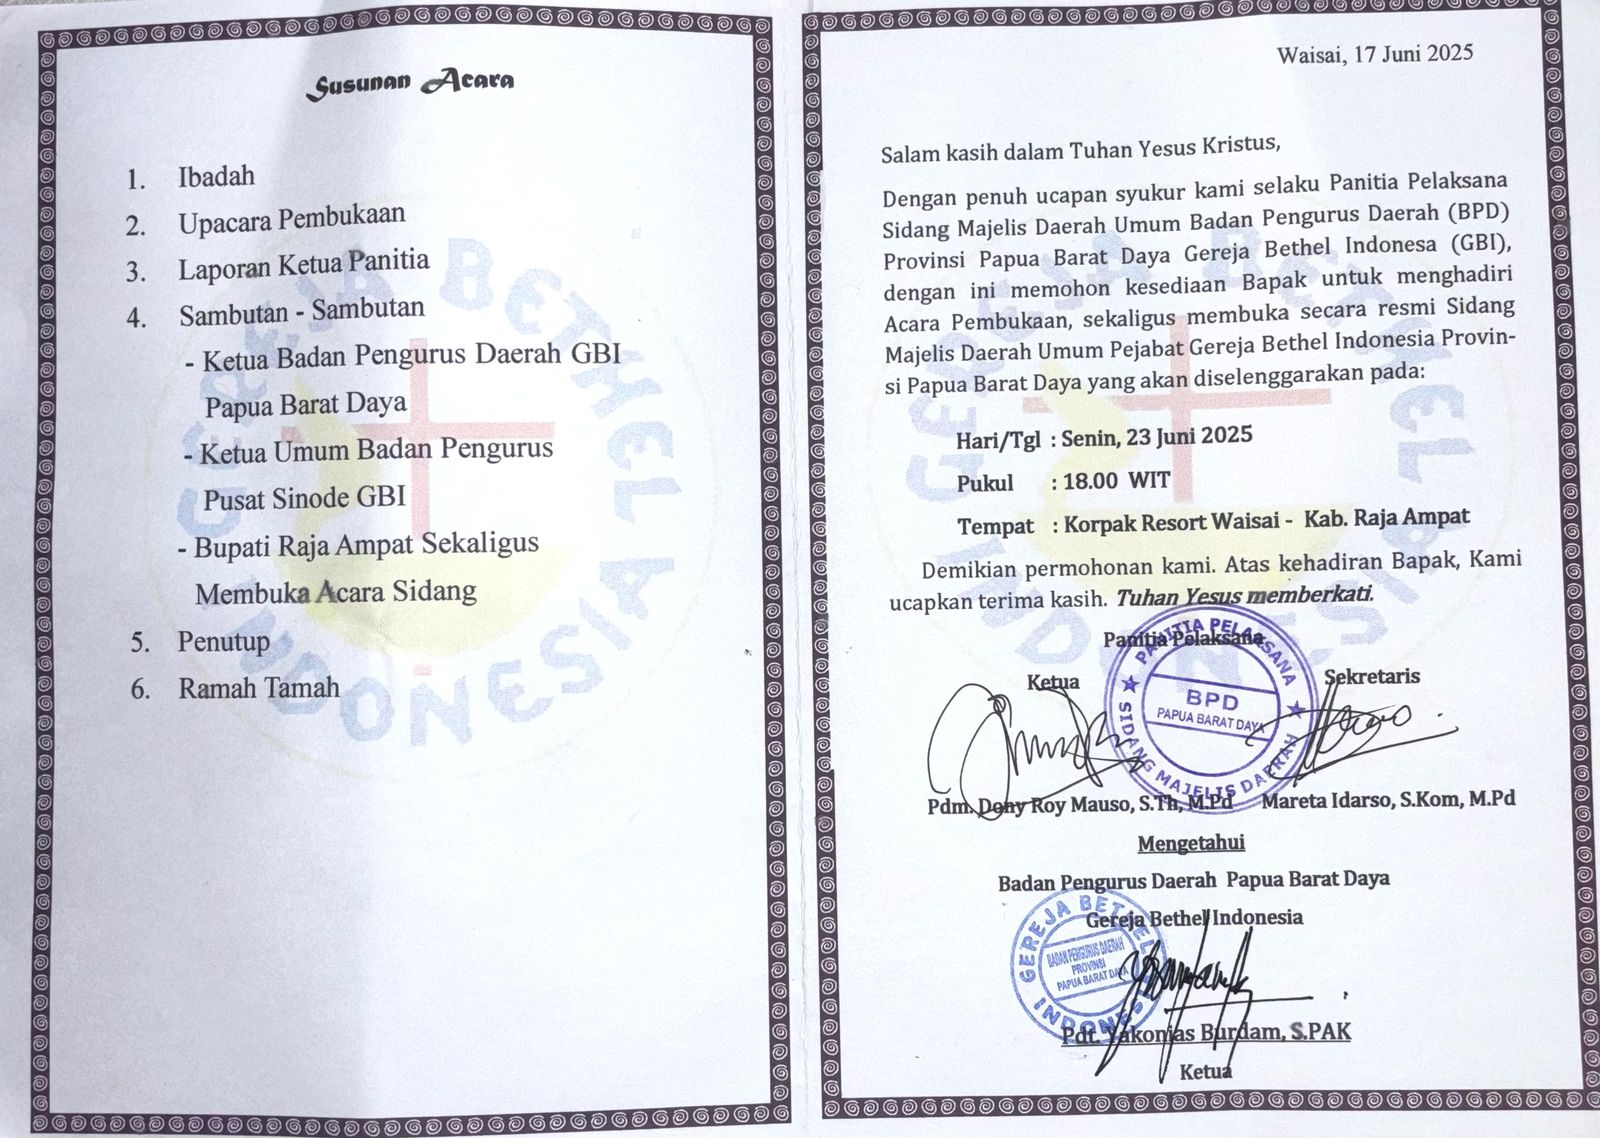 Susunan Acara
1. Ibadah
2. Upacara Pembukaan
3. Laporan Ketua Panitia
4. Sambutan - Sambutan
- Ketua Badan Pengurus Daerah GBI
Papua Barat Daya
- Ketua Umum Badan Pengurus
Pusat Sinode GBI
- Bupati Raja Ampat Sekaligus
Membuka Acara Sidang
5. Penutup
6. Ramah Tamah
GEREJA BETHEL INDONESIA
Waisai, 17 Juni 2025
Salam kasih dalam Tuhan Yesus Kristus,
Dengan penuh ucapan syukur kami selaku Panitia Pelaksana
Sidang Majelis Daerah Umum Badan Pengurus Daerah (BPD)
Provinsi Papua Barat Daya Gereja Bethel Indonesa (GBI),
dengan ini memohon kesediaan Bapak untuk menghadiri
Acara Pembukaan, sekaligus membuka secara resmi Sidang
Majelis Daerah Umum Pejabat Gereja Bethel Indonesia Provin-
si Papua Barat Daya yang akan diselenggarakan pada:
Hari/Tgl : Senin, 23 Juni 2025
Pukul : 18.00 WIT
Tempat : Korpak Resort Waisai - Kab. Raja Ampat
Demikian permohonan kami. Atas kehadiran Bapak, Kami
ucapkan terima kasih. Tuhan Yesus memberkati.
Panitia Pelaksana
Ketua
Sekretaris
PANITIA PELAKSANA
BPD
PAPUA BARAT DAYA
SIDANG MAJELIS DAERAH
Pdm. Dony Roy Mauso, S.Th, M.Pd
Mareta Idarso, S.Kom, M.Pd
Mengetahui
Badan Pengurus Daerah Papua Barat Daya
Gereja Bethel Indonesia
GEREJA BETHEL
BADAN PENGURUS DAERAH
PROVINSI
PAPUA BARAT DAYA
INDONESIA
Pdt. Yakonias Burdam, S.PAK
Ketua
GEREJA BETHEL INDONESIA